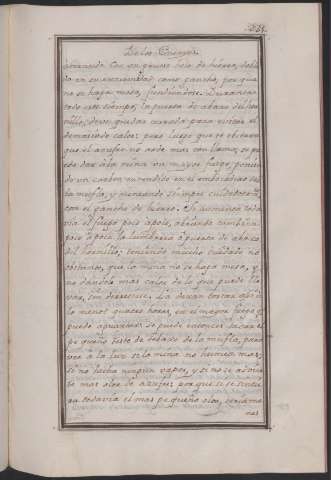 De los Ensayes
con un grueso hilo de hierro, dobla-
do en su extremidad como gancho, por que
no se haga masa, fundiendose. Durante
todo este tiempo, la puerta de abaxo del hor-
nillo, deve quedar cerrada para evitar el
demasiado calor; pero luego que se observa
que el azufre no arde mas con llama, se pue-
de dar a la mina un mayor fuego, ponien-
do un carbon encendido en el embocadero de
la mufla, y meneando siempre
con el gancho de hierro. Se aumenta toda-
via el fuego poco a poco, abriendo tambien
poco a poco la lumbrera o puerta de abaxo
del hornillo; teniendo mucho cuidado no
obstante, que la mina no se haga masa, y
no dandola mas calor de lo que puede lle-
var, sin derretirse. La dexan tostar assi a
lo menos quatro horas, en el mayor fuego q
puede aguantar: se puede entonces sacar el
pequeño tiesto de debaxo de la mufla, para
ver a la luz si la mina no humea mas,
si no hecha ningun vapor, y si no se
mas olor de azufre; por que si se sintie-
ra todavia el mas pequeño olor,
nas